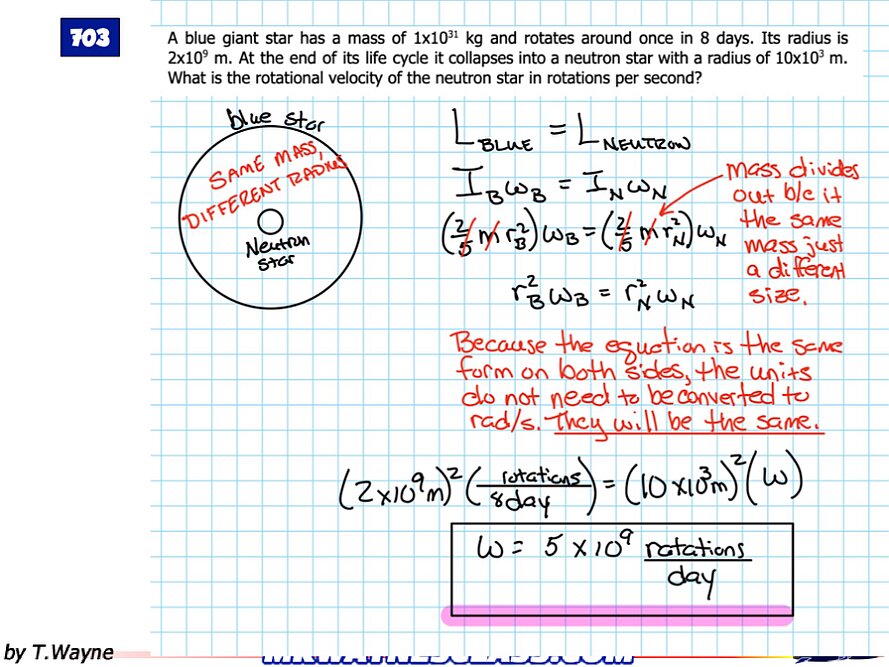 703
A blue giant star has a mass of 1x10³¹ kg and rotates around once in 8 days. Its radius is
2x10⁹ m. At the end of its life cycle it collapses into a neutron star with a radius of 10x10³ m.
What is the rotational velocity of the neutron star in rotations per second?
blue star
SAME MASS,
DIFFERENT RADIUS
Neutron
star
L_BLUE = L_NEUTRON
I_B ω_B = I_N ω_N
(2/5 m r_B²) ω_B = (2/5 m r_N²) ω_N
r_B² ω_B = r_N² ω_N
mass divides
out b/c it
the same
mass just
a different
size.
Because the equation is the same
form on both sides, the units
do not need to be converted to
rad/s. They will be the same.
(2x10⁹m)² (rotations/8day) = (10x10³m)² (ω)
ω = 5 x 10⁹ rotations/day
by T.Wayne